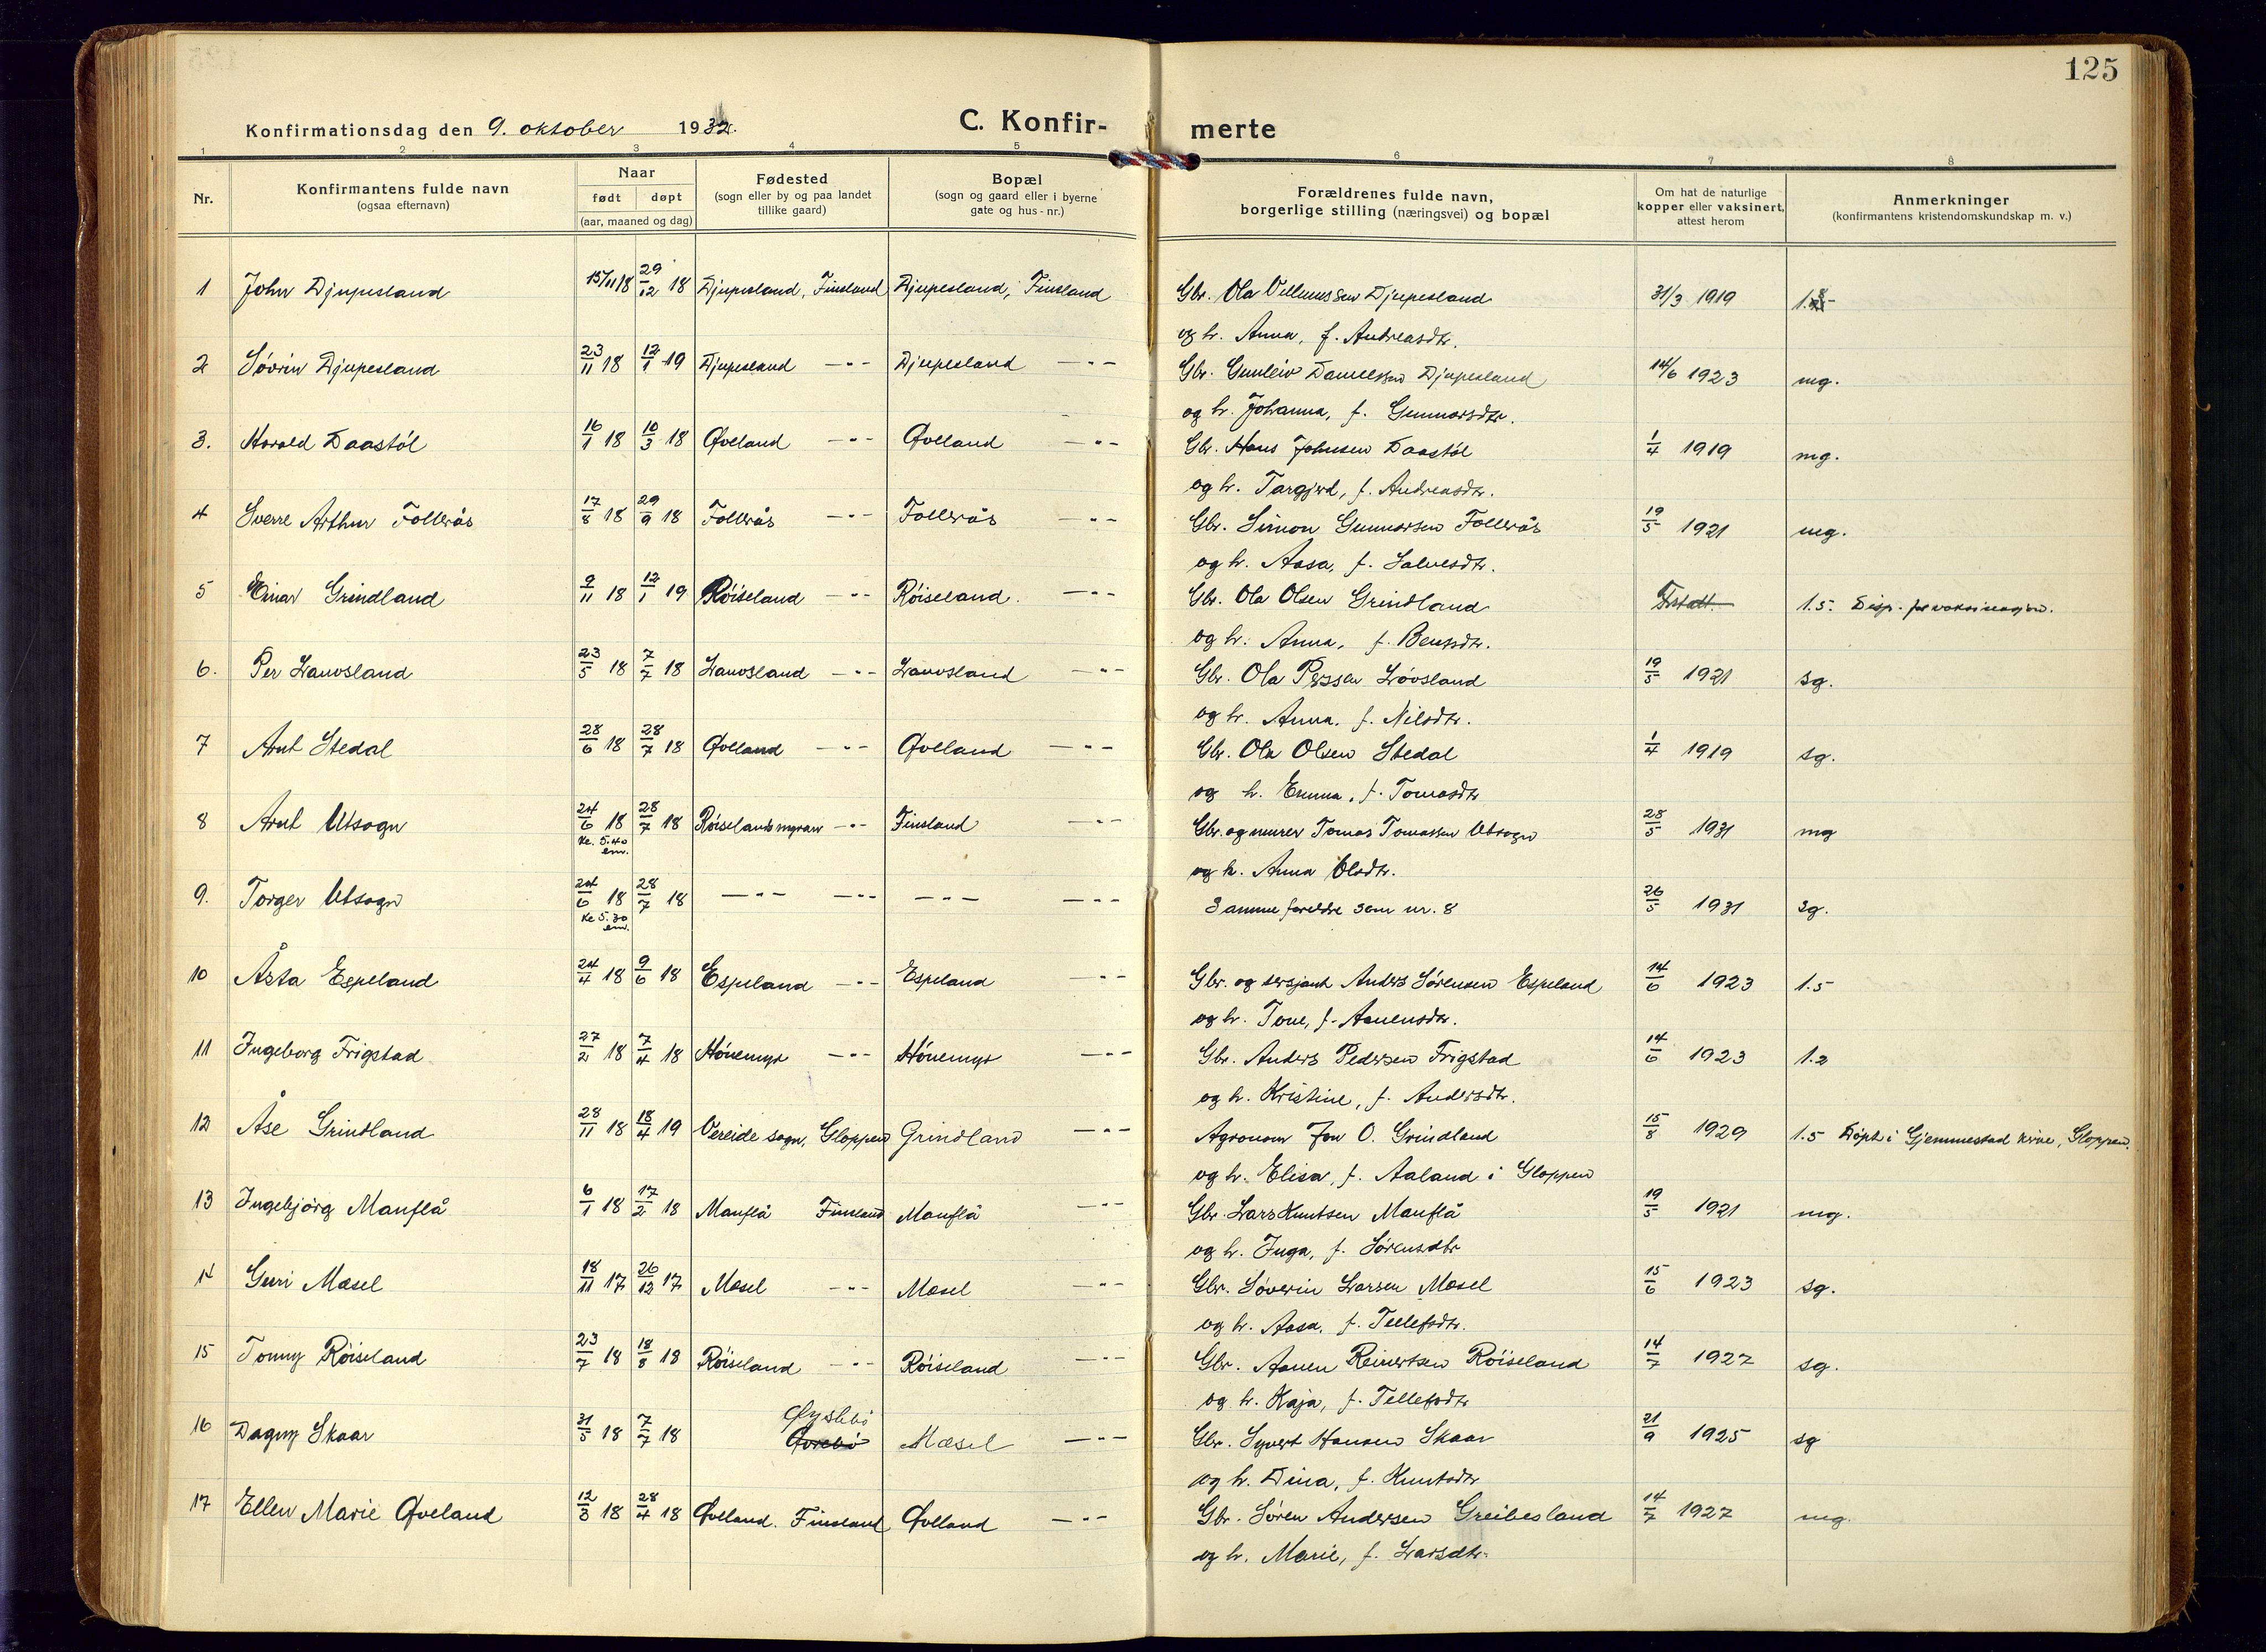 125
Konfirmationsdag den 9. oktober 1932.
C. Konfir-
merte
1 2 3 4 5 6 7 8
Nr.
Konfirmantens fulde navn
(ogsaa efternavn)
Naar
født døpt
(aar, maaned og dag)
Fødested
(sogn eller by og paa landet
tillike gaard)
Bopæl
(sogn og gaard eller i byerne
gate og hus-nr.)
Forældrenes fulde navn,
borgerlige stilling (næringsvei) og bopæl
Om hat de naturlige
kopper eller vaksinert,
attest herom
Anmerkninger
(konfirmantens kristendomskundskap m. v.)
1 John Djupesland 15/11 18 29/12 18 Djupesland, Finsland Djupesland, Finsland Gbr. Ola Villumssen Djupesland 31/3 1919
og h. Anna, f. Andreasdtr.
2 Søvrin Djupesland 23/11 18 12/1 19 Djupesland —"— Djupesland —"— Gbr. Gunleiv Danielsen Djupesland 14/6 1923 mg.
og h. Johanna, f. Gunnarsdtr.
3. Harald Daastøl 16/1 18 10/3 18 Øvland —"— Øvland —"— Gbr. Hans Johnsen Daastøl 1/4 1919 mg.
og h. Targjerd, f. Andreasdtr.
4 Sverre Arthur Follerås 17/8 18 29/9 18 Follerås —"— Follerås —"— Gbr. Simon Gunnarsen Follerås 19/5 1921 mg.
og h. Aasa, f. Salvesdtr.
5 Einar Grindland 9/11 18 12/1 19 Røiseland —"— Røiseland. —"— Gbr. Ola Olsen Grindland 1.5. Disp. for vaksinasjon.
og h. Anna, f. Bentsdtr.
6. Per Lauvsland 23/5 18 7/7 18 Lauvsland —"— Lauvsland —"— Gbr. Ola Perssen Løvsland 19/5 1921 sg.
og h. Anna, f. Nilsdtr.
7 Arnt Stedal 28/6 18 28/7 18 Øvland —"— Øvland —"— Gbr. Ola Olsen Stedal 1/4 1919 sg.
og h. Emma, f. Tomasdtr
8 Arnt Utsogn 24/6 18 28/7 18 Røiselandsmyran —"— Finsland —"— Gbr. og murer Tomas Tomassen Utsogn 28/5 1931 mg
kl. 5.40 em.
og h. Anna Olsdtr.
9. Torger Utsogn 24/6 18 28/7 18 —"— —"— —"— —"— Samme foreldre som nr. 8 26/5 1931 sg.
kl 5.30 em.
10 Åsta Espeland 24/4 18 9/6 18 Espeland —"— Espeland —"— Gbr. og sersjant Anders Sørensen Espeland 14/6 1923 1.5
og h. Tone, f. Aanensdtr.
11 Ingeborg Frigstad 27/2 18 7/4 18 Hønemyr —"— Hønemyr —"— Gbr. Anders Pedersen Frigstad 14/6 1923 1.2
og h. Kristine, f. Andersdtr.
12 Åse Grindland 28/11 18 18/4 19 Vereide sogn, Gloppen Grindland —"— Agronom Jon O. Grindland 15/8 1929 1.5 Døpt i Gjemmestad kirke, Gloppen.
og h. Elisa, f. Aaland i Gloppen
13 Ingebjørg Manflå 6/1 18 17/2 18 Manflå Finsland Manflå —"— Gbr. Lars Knutsen Manflå 19/5 1921 mg.
og h. Inga, f. Sørensdtr
14 Guri Mæsel 18/11 17 26/12 17 Mæsel —"— Mæsel —"— Gbr. Søverin Larsen Mæsel 15/6 1923 sg.
og h. Aasa, f. Tellefsdtr.
15 Tonny Røiseland 23/7 18 18/8 18 Røiseland —"— Røiseland —"— Gbr. Aanen Reinertsen Røiseland 14/7 1927 sg.
og h. Kaja, f. Tellefsdtr
16 Dagny Skaar 31/5 18 7/7 18 Øyslebø Øvrebø Mæsel —"— Gbr. Syvert Hansen Skaar 21/9 1925 sg
og h. Dina, f. Knutsdtr
17 Ellen Marie Øveland 12/3 18 28/4 18 Øvland. Finsland Øvland —"— Gbr. Søren Andersen Greibesland 14/7 1927 mg.
og h. Marie, f. Larsdtr.